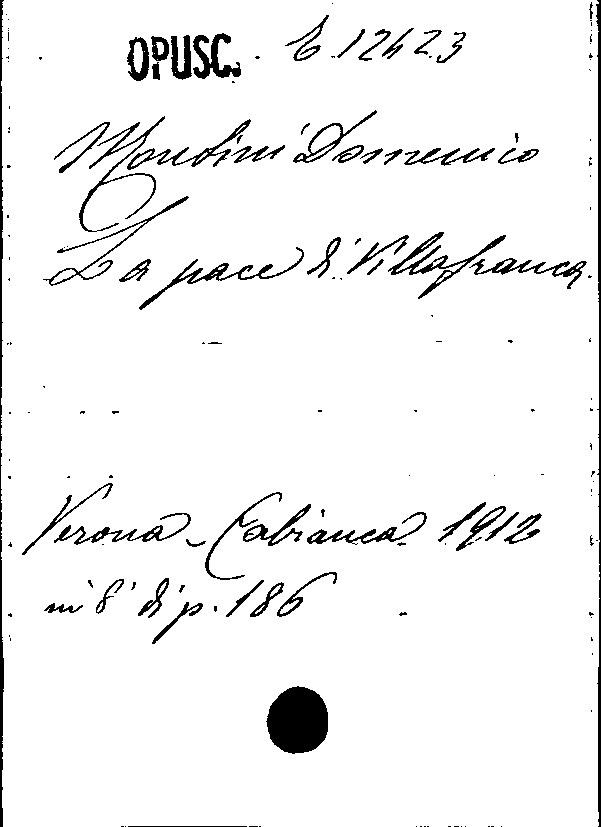 OPUSC. E 12423
Mondini Domenico
La pace di Villafranca.
Verona - Cabianca 1912
in 8° di p. 186